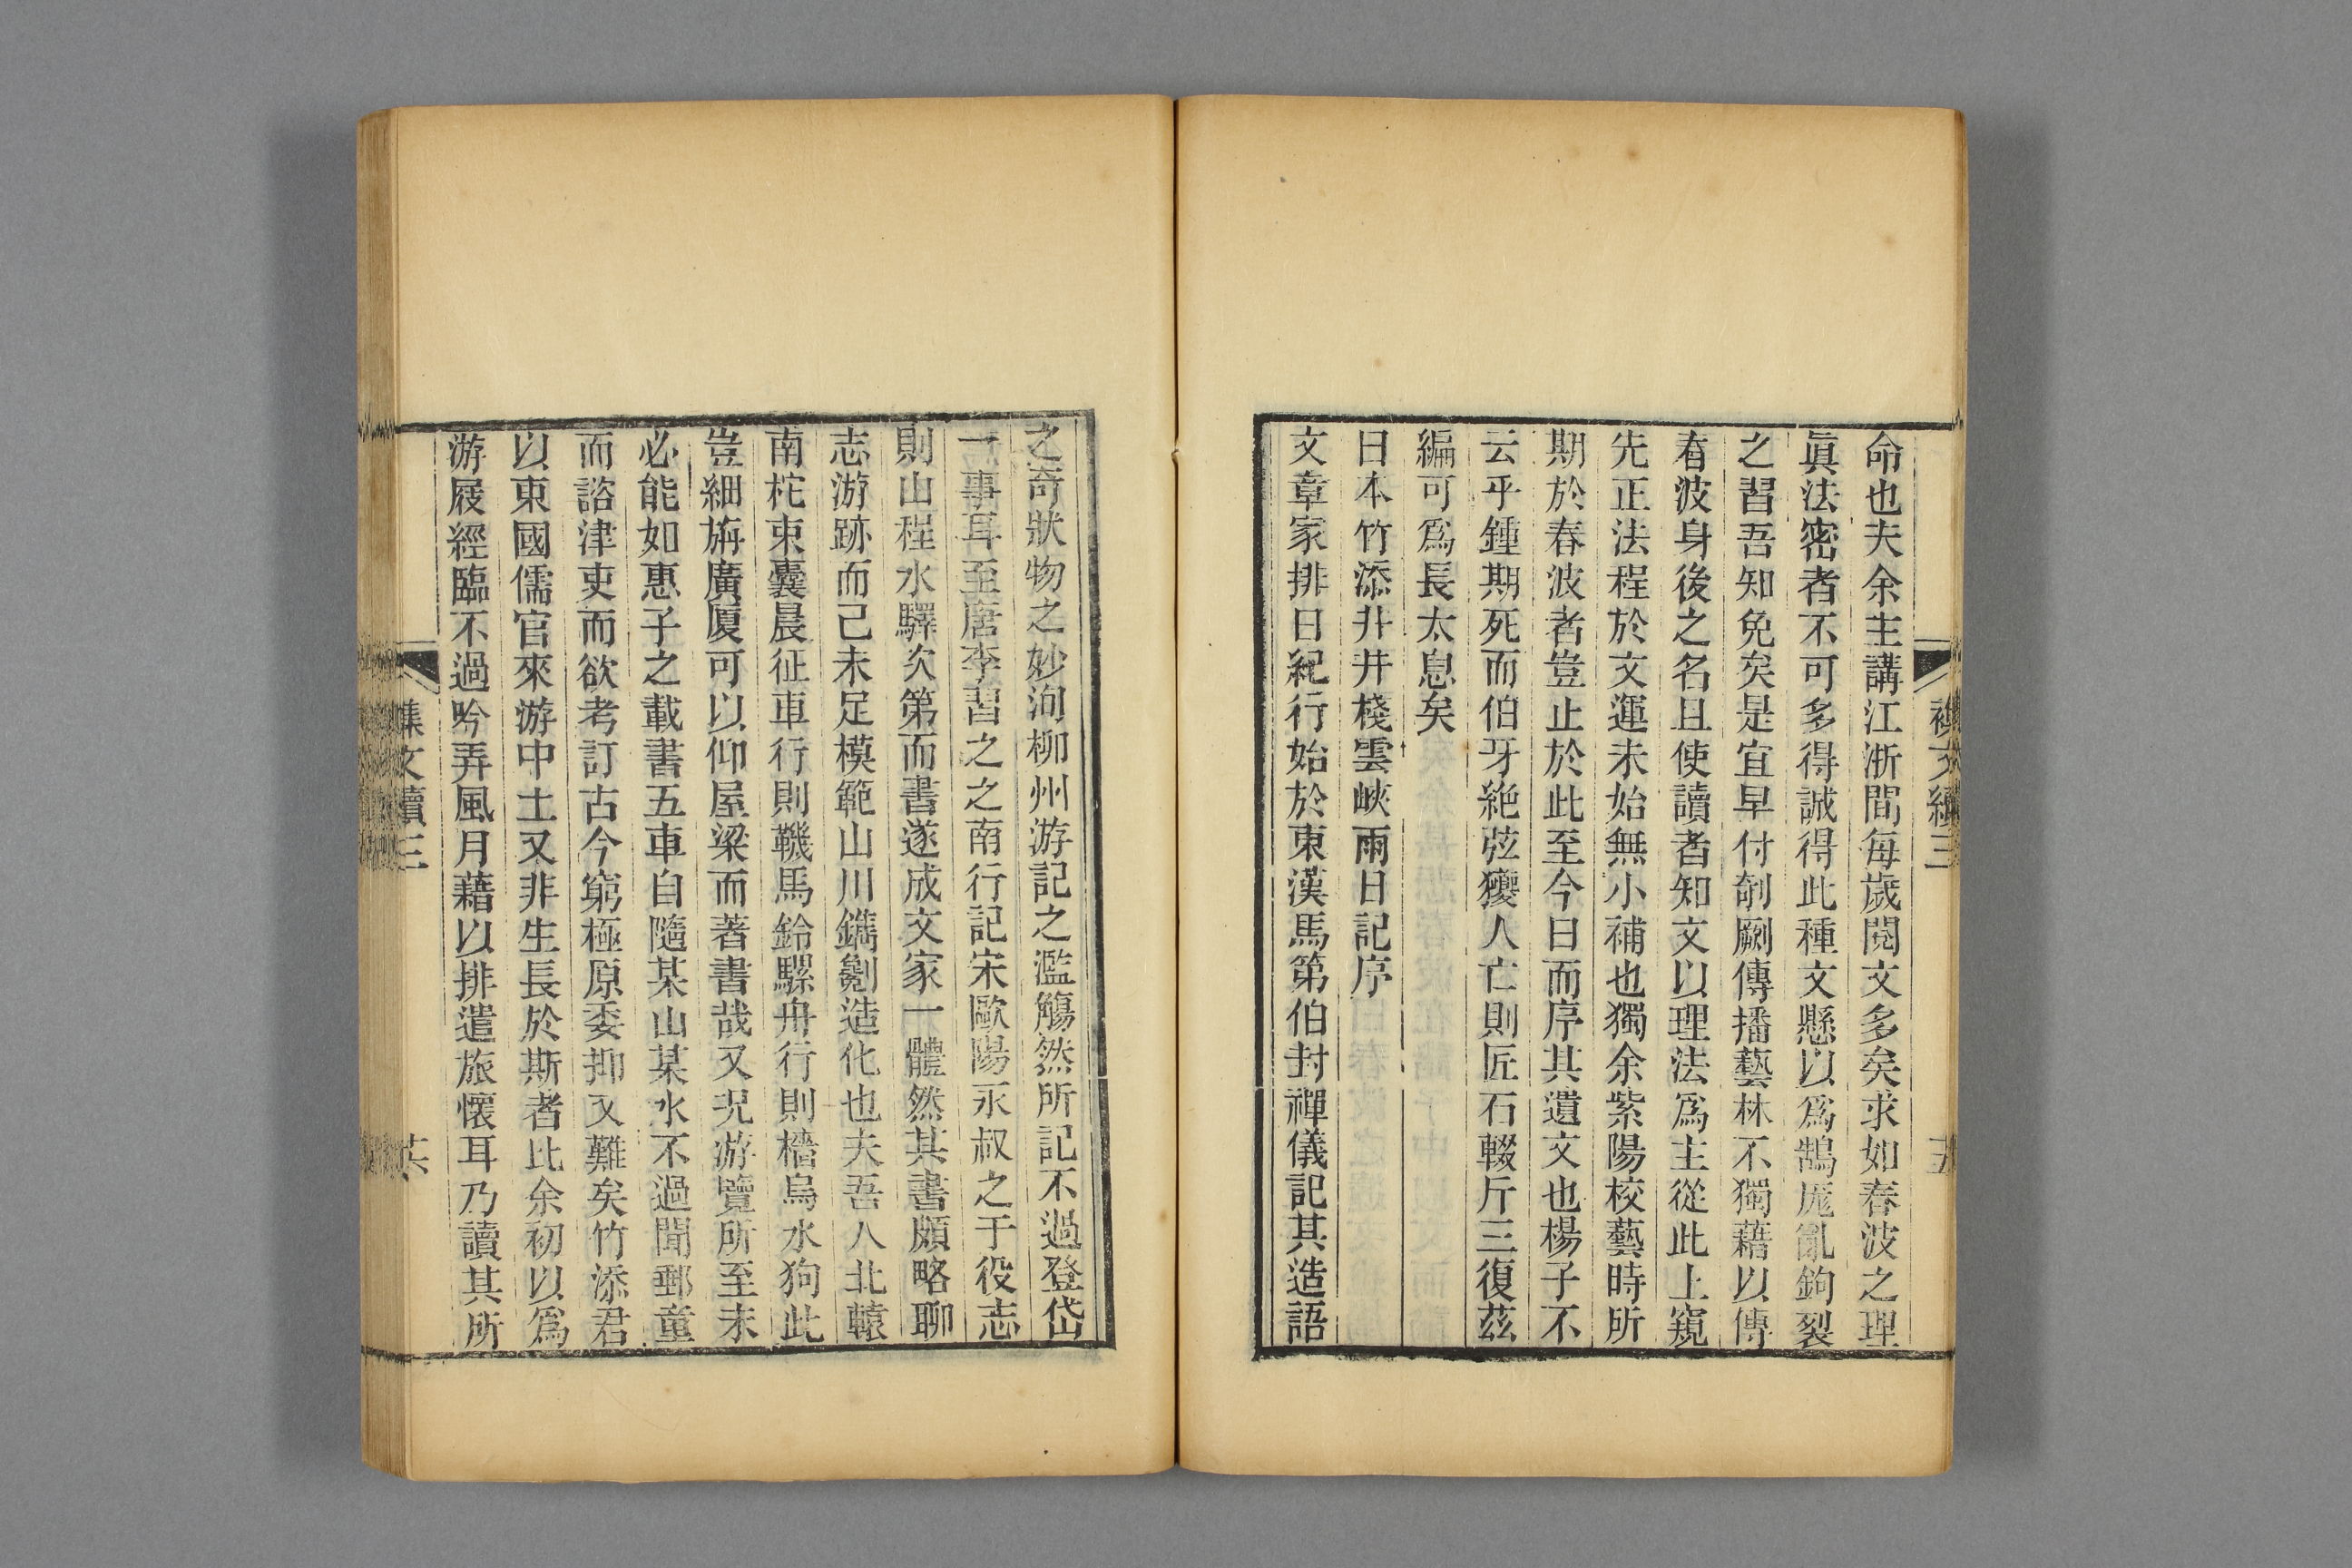 命也夫余主講江浙間每歲閱文多矣求如春波之理
眞法密者不可多得誠得此種文懸以爲鵠厖亂鉤裂
之習吾知免矣是宜早付剞劂傳播藝林不獨藉以傳
春波身後之名且使讀者知文以理法爲主從此上窺
先正法程於文運未始無小補也獨余紫陽校藝時所
期於春波者豈止於此至今日而序其遺文也楊子不
云乎鍾期死而伯牙絶弦獿人亡則匠石輟斤三復茲
編可爲長太息矣
日本竹添井井棧雲峽雨日記序
文章家排日紀行始於東漢馬第伯封禪儀記其造語
之奇狀物之妙洵柳州游記之濫觴然所記不過登岱
一事耳至唐李習之之南行記宋歐陽永叔之于役志
則山程水驛次第而書遂成文家一體然其書頗略聊
志游跡而已未足模範山川鐫劖造化也夫吾人北轅
南柁束囊晨征車行則鞿馬鈴騾舟行則檣烏水狗此
豈細旃廣厦可以仰屋梁而著書哉又況游覽所至未
必能如惠子之載書五車自隨某山某水不過聞郵童
而諮津吏而欲考訂古今窮極原委抑又難矣竹添君
以東國儒官來游中土又非生長於斯者此余初以爲
游屐經臨不過吟弄風月藉以排遣旅懷耳乃讀其所